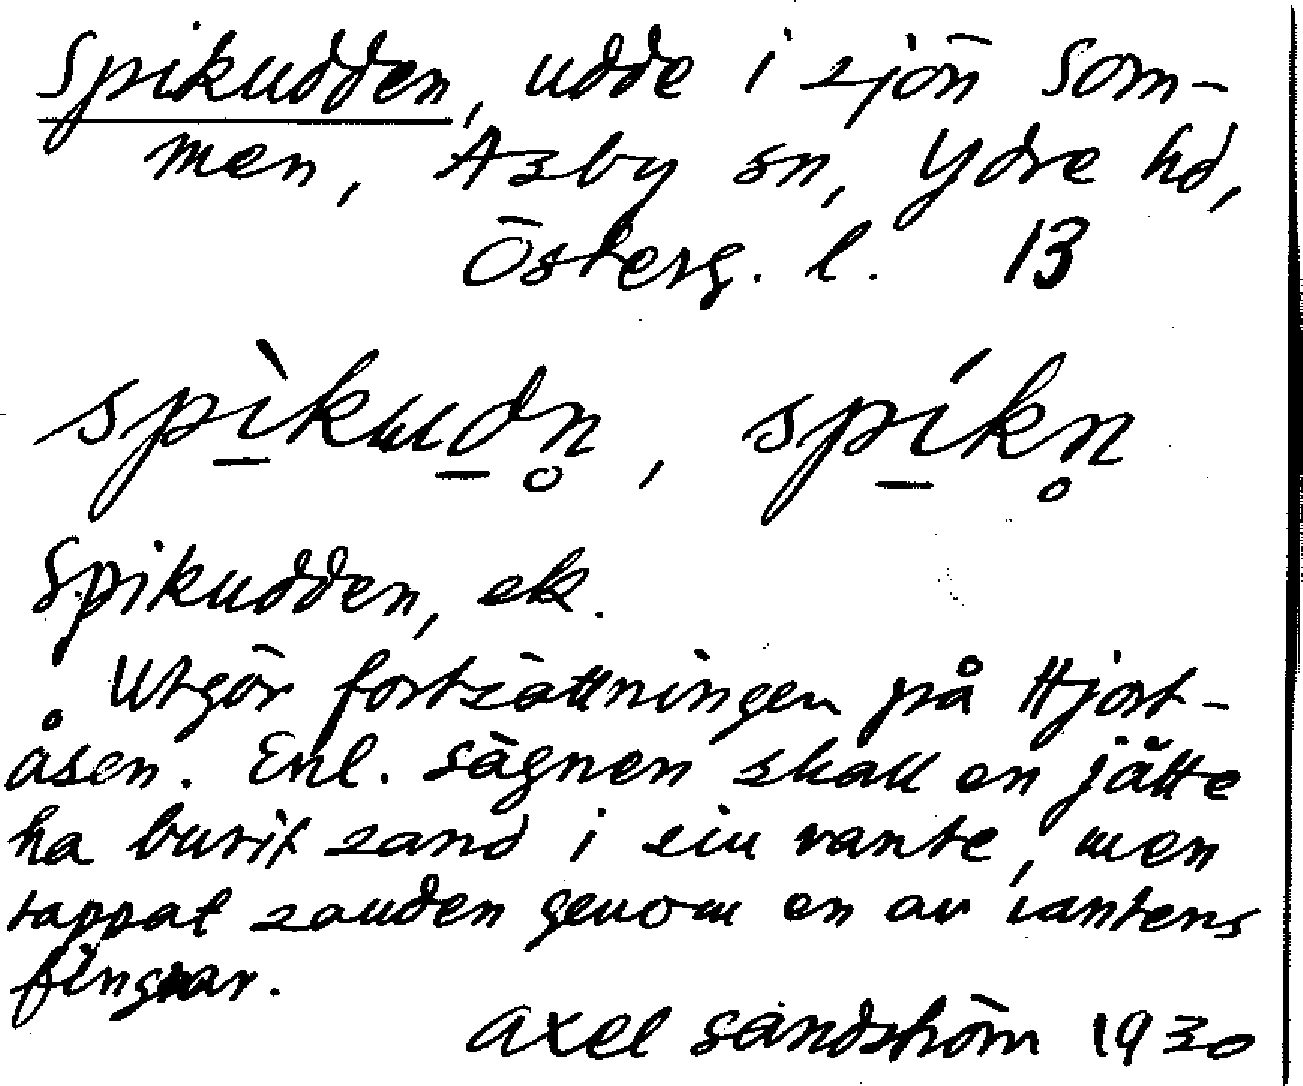 Spikudden, udde i sjön Som-
men, Asby sn, Ydre hd,
Österg. l. 13
spì̱kuu̱dn̥, spí̱kn̥
Spikudden, ek.
Utgör fortsättningen på Hjort-
åsen. Enl. sägnen skall en jätte
ha burit sand i sin vante, men
tappat sanden genom en av vantens
fingrar.
Axel Sandström 1930